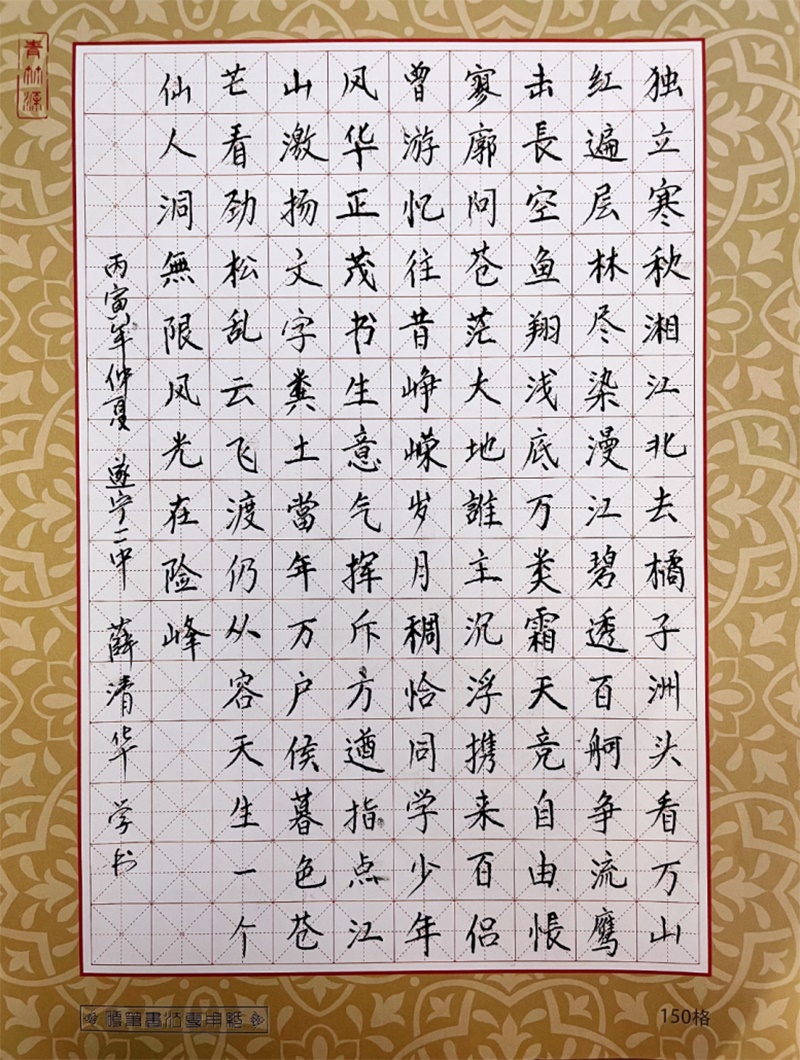 独立寒秋湘江北去橘子洲头看万山
红遍层林尽染漫江碧透百舸争流鹰
击長空鱼翔浅底万类霜天竞自由悵
寥廓问苍茫大地誰主沉浮携来百侣
曾游忆往昔峥嵘岁月稠恰同学少年
风华正茂书生意气挥斥方遒指点江
山激扬文字粪土當年万户侯暮色苍
芒看劲松乱云飞渡仍从容天生一个
仙人洞無限风光在险峰
丙寅年仲夏 遂宁二中 薛清华 学书
青竹源
硬筆書法專用紙
150格